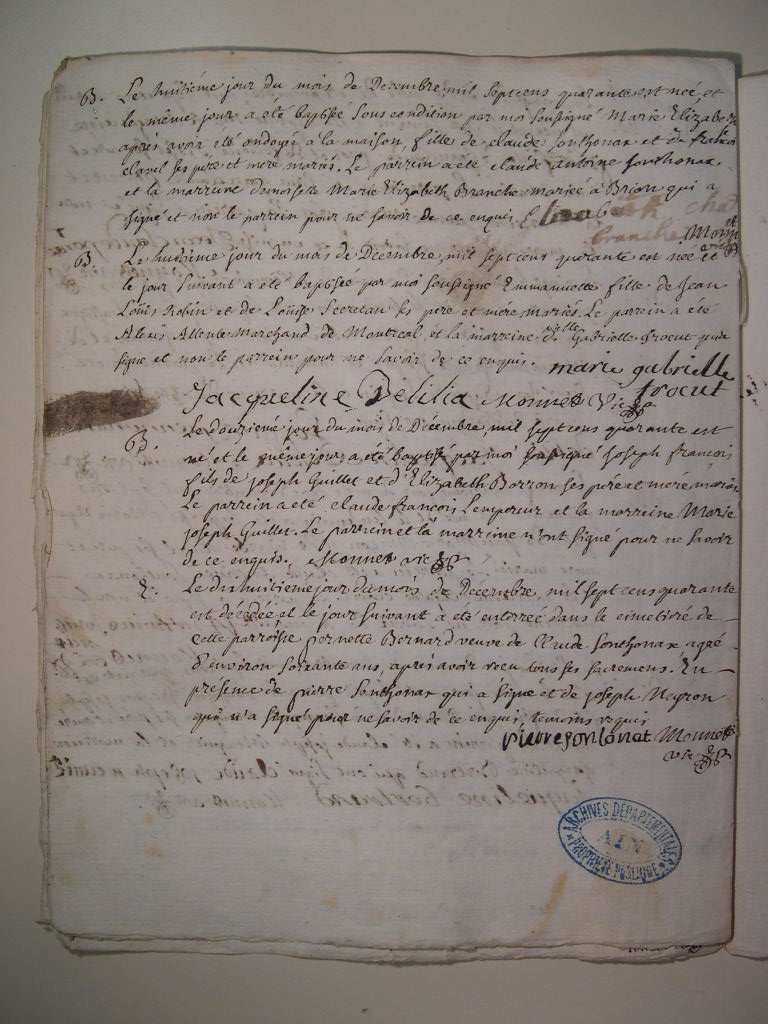 B. Le huitiéme jour du mois de Decembre, mil septcens quarante est née, et
le même jour a été baptisée sous condition par moi soussigné Marie Elizabeth
après avoir été ondoyé a la maison, fille de claude sonthonax et de francois
clavel ses pere et mere mariés. Le parrein a été claude antoine sonthonax,
et la marreine demoiselle Marie Elizabeth Branche mariée à Brion qui a
signé et non le parrein pour ne savoir de ce enquis Elisabeth chat
branche Monnet
vic
B Le huitiéme jour du mois de Décembre, mil septcens quarante est née et
le jour suivant a été baptisée par moi soussigné Emmanuelle fille de Jean
Loüis Robin et de Loüise Secretan ses pere et mére mariés. Le parrein a été
Alexis Allente Marchand de Montreal et la marreine dlle Gabrielle trocut qui a
signé et non le parrein pour ne savoir de ce enquis. marie gabrielle
trocut
Jacqueline Delilia Monnet vic
B. Le douziéme jour du mois de Décembre, mil septcens quarante est
né et le même jour a été baptisé par moi soussigné joseph francois
fils de joseph Guillet et d'Elizabeth Borron ses pere et mere mariés
Le parrein a été claude francois Lempereur et la marreine Marie
joseph Guillet. Le parrein et la marreine n'ont signé pour ne savoir
de ce enquis. Monnet vic
Le dixhuitiéme jour du mois de Décembre, mil sept cens quarante
est décédée et le jour suivant a été enterreé dans le cimetiére de
cette parroisse pernette Bernard veuve de Claude Sonthonax agée
d'environ soixante ans, après avoir reçu tous ses sacremens. En
présence de pierre Sonthonax qui a signé et de joseph Nayron
qui n'a signé pour ne savoir de ce enquis, temoins requis
pierre sontonat Monnet
vic
ARCHIVES DEPARTEMENTALES
AIN
PROPRIETE PUBLIQUE